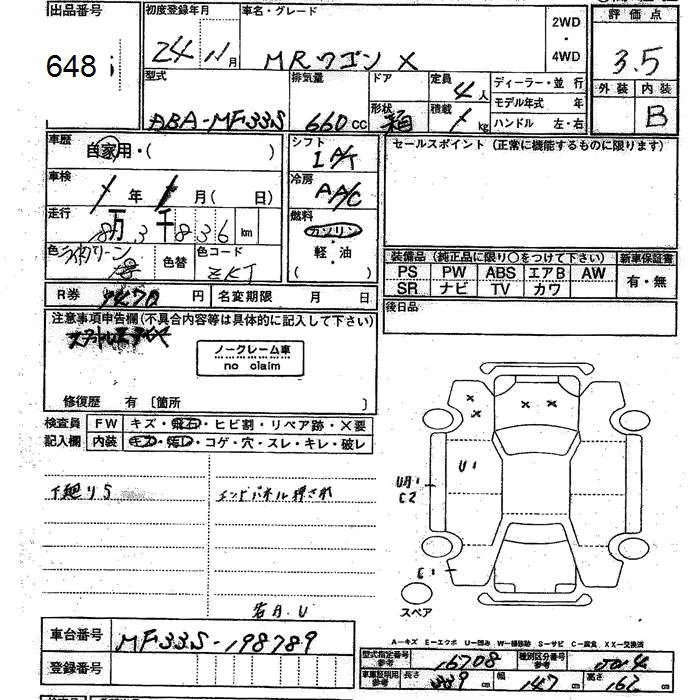 出品番号
648
初度登録年月
24 11月
車名・グレード
MRワゴン X
2WD
・
4WD
評価点
3.5
外装 内装
B
型式
ABA-MF33S
排気量
660cc
ドア
形状
箱
定員
4人
積載
kg
ディーラー・並 行
モデル年式 年
ハンドル 左・右
車歴
自家用・( )
シフト
IA/T
セールスポイント (正常に機能するものに限ります)
車検
年 月( 日)
冷房
AA/C
走行
8万3千836km
燃料
ガソリン
軽・油
( )
色
色替
色コード
ZKJ
装備品 (純正品に限り○をつけて下さい)
新車保証書
PS PW ABS エアB AW
SR ナビ TV カワ
有・無
R券
円
名変期限 月 日
後日品
注意事項申告欄(不具合内容等は具体的に記入して下さい)
ノークレーム車
no claim
修復歴 有 〔箇所 〕
検査員
記入欄
FW キズ・飛石・ヒビ割・リペア跡・X要
内装 キズ・汚レ・コゲ・穴・スレ・キレ・破レ
下廻りS
エンドパネル押され
U1
C2
スペア
車台番号
MF33S-198789
登録番号
A-キズ E-エクボ U-凹み W-補修跡 S-サビ C-腐食 XX-交換済
型式指定番号
参考
16708
種別区分番号
参考
車庫証明用
参考
長さ 339 cm
幅 147 cm
高さ 162 cm